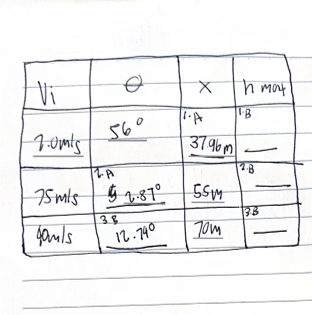 Vi θ x h max
56° 1.A 37.96m 1.B
75m/s 2.A 2.87° 55m 2.B
40m/s 3.B 12.74° 70m 3.B